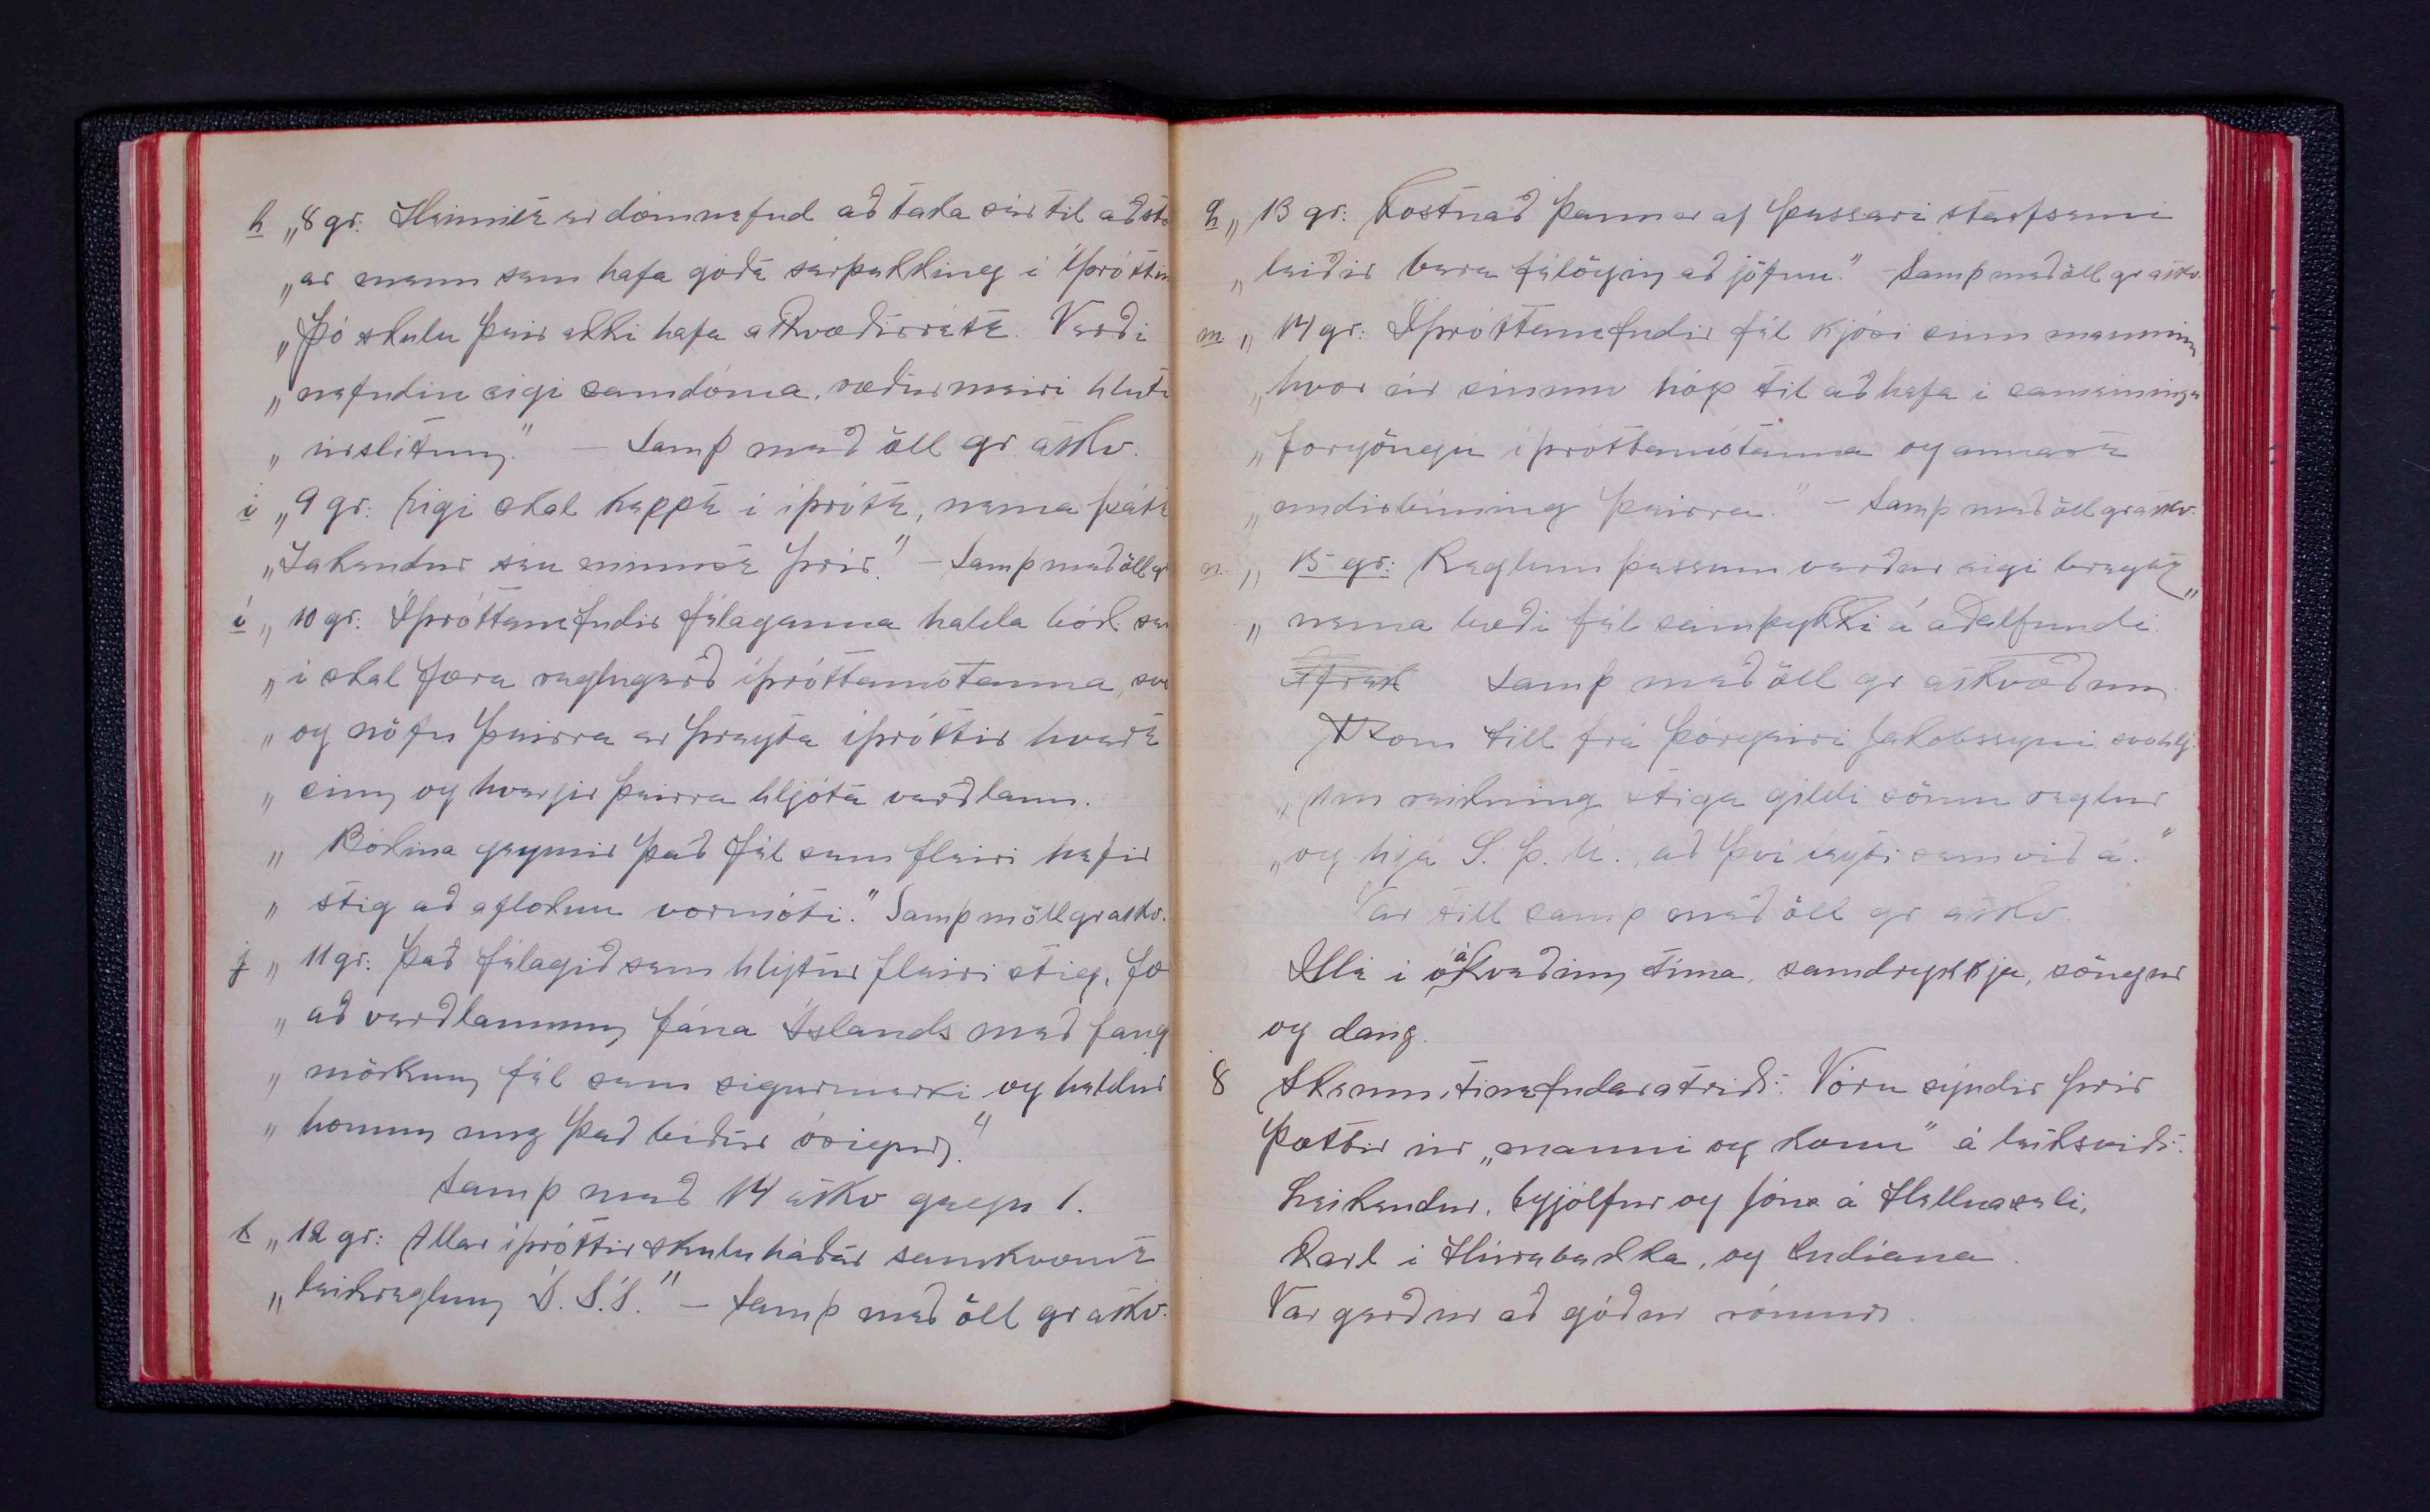 h „8 gr. Heimilt er dómnefnd að taka sér til aðsto
„ar menn sem hafa góða sérþekking í íþróttin
„Þó skulu þeir ekki hafa atkvæðisrétt. Verði
„nefndin eigi samdóma, ræður meiri hluti
„úrslitum." – Samþ með öll gr. atkv.
i „9 gr: Eigi skal keppt í íþrótt, nema þátt
„Takendur séu minnst þrír." – Samþ með öll gr
í „10 gr. Íþróttanefndir félaganna halda bók sem
„í skal færa reglugerð íþróttamótanna, svo
„og nöfn þeirra er þreyta íþróttir hvert
„sinn og hverjir þeirra hljóta verðlaun.
„Bókina geymir það fél sem fleiri hefir
„stig að afloknu vormóti." Samþ m öll gr atkv.
j „11 gr: Það félagið sem hlýtur fleiri stig, fæ
„að verðlaunum fána Íslands með fang
„mörkum fél sem sigurmerki og heldur
„honum unz það bíður ósigur."
Samþ með 14 atkv gegn 1.
k „12 gr: Allar íþróttir skulu háðar samkvæmt
„leikreglum Í.S.Í." – Samþ með öll gr atkv.
l „13 gr: Kostnað þann er af þessari starfsemi
„leiðir bera félögin að jöfnu." – Samþ með öll gr atkv.
m „14 gr: Íþróttanefndir fél kjósi einn manninn
„hvor úr sínum hóp til að hafa í sameiningu
„forgöngu íþróttamótanna og annast
„undirbúning þeirra." – Samþ með öll gr atkv.
n. „15 gr: Reglum þessum verður eigi breytt
„nema bæði fél samþykki á aðalfundi."
Samþ með öll gr atkvæðum
Kom till frá Þórgeiri Jakobssyni svohlj.
„Um reikning stiga gildi sömu reglur
„og hjá S. Þ. U. að því leyti sem við á."
Var till samþ með öll gr atkv.
Hlé í óákveðinn tíma, samdrykkja, söngur
og dans.
8 Skemmtinefndaratriði: Vóru sýndir þrír
Þættir úr „manni og konu" á leiksviði.
Leikendur, Eyjólfur og Jóna á Hallnaseli,
Karl í Hörgabakka, og Indíana.
Var gerður að góður rómur.